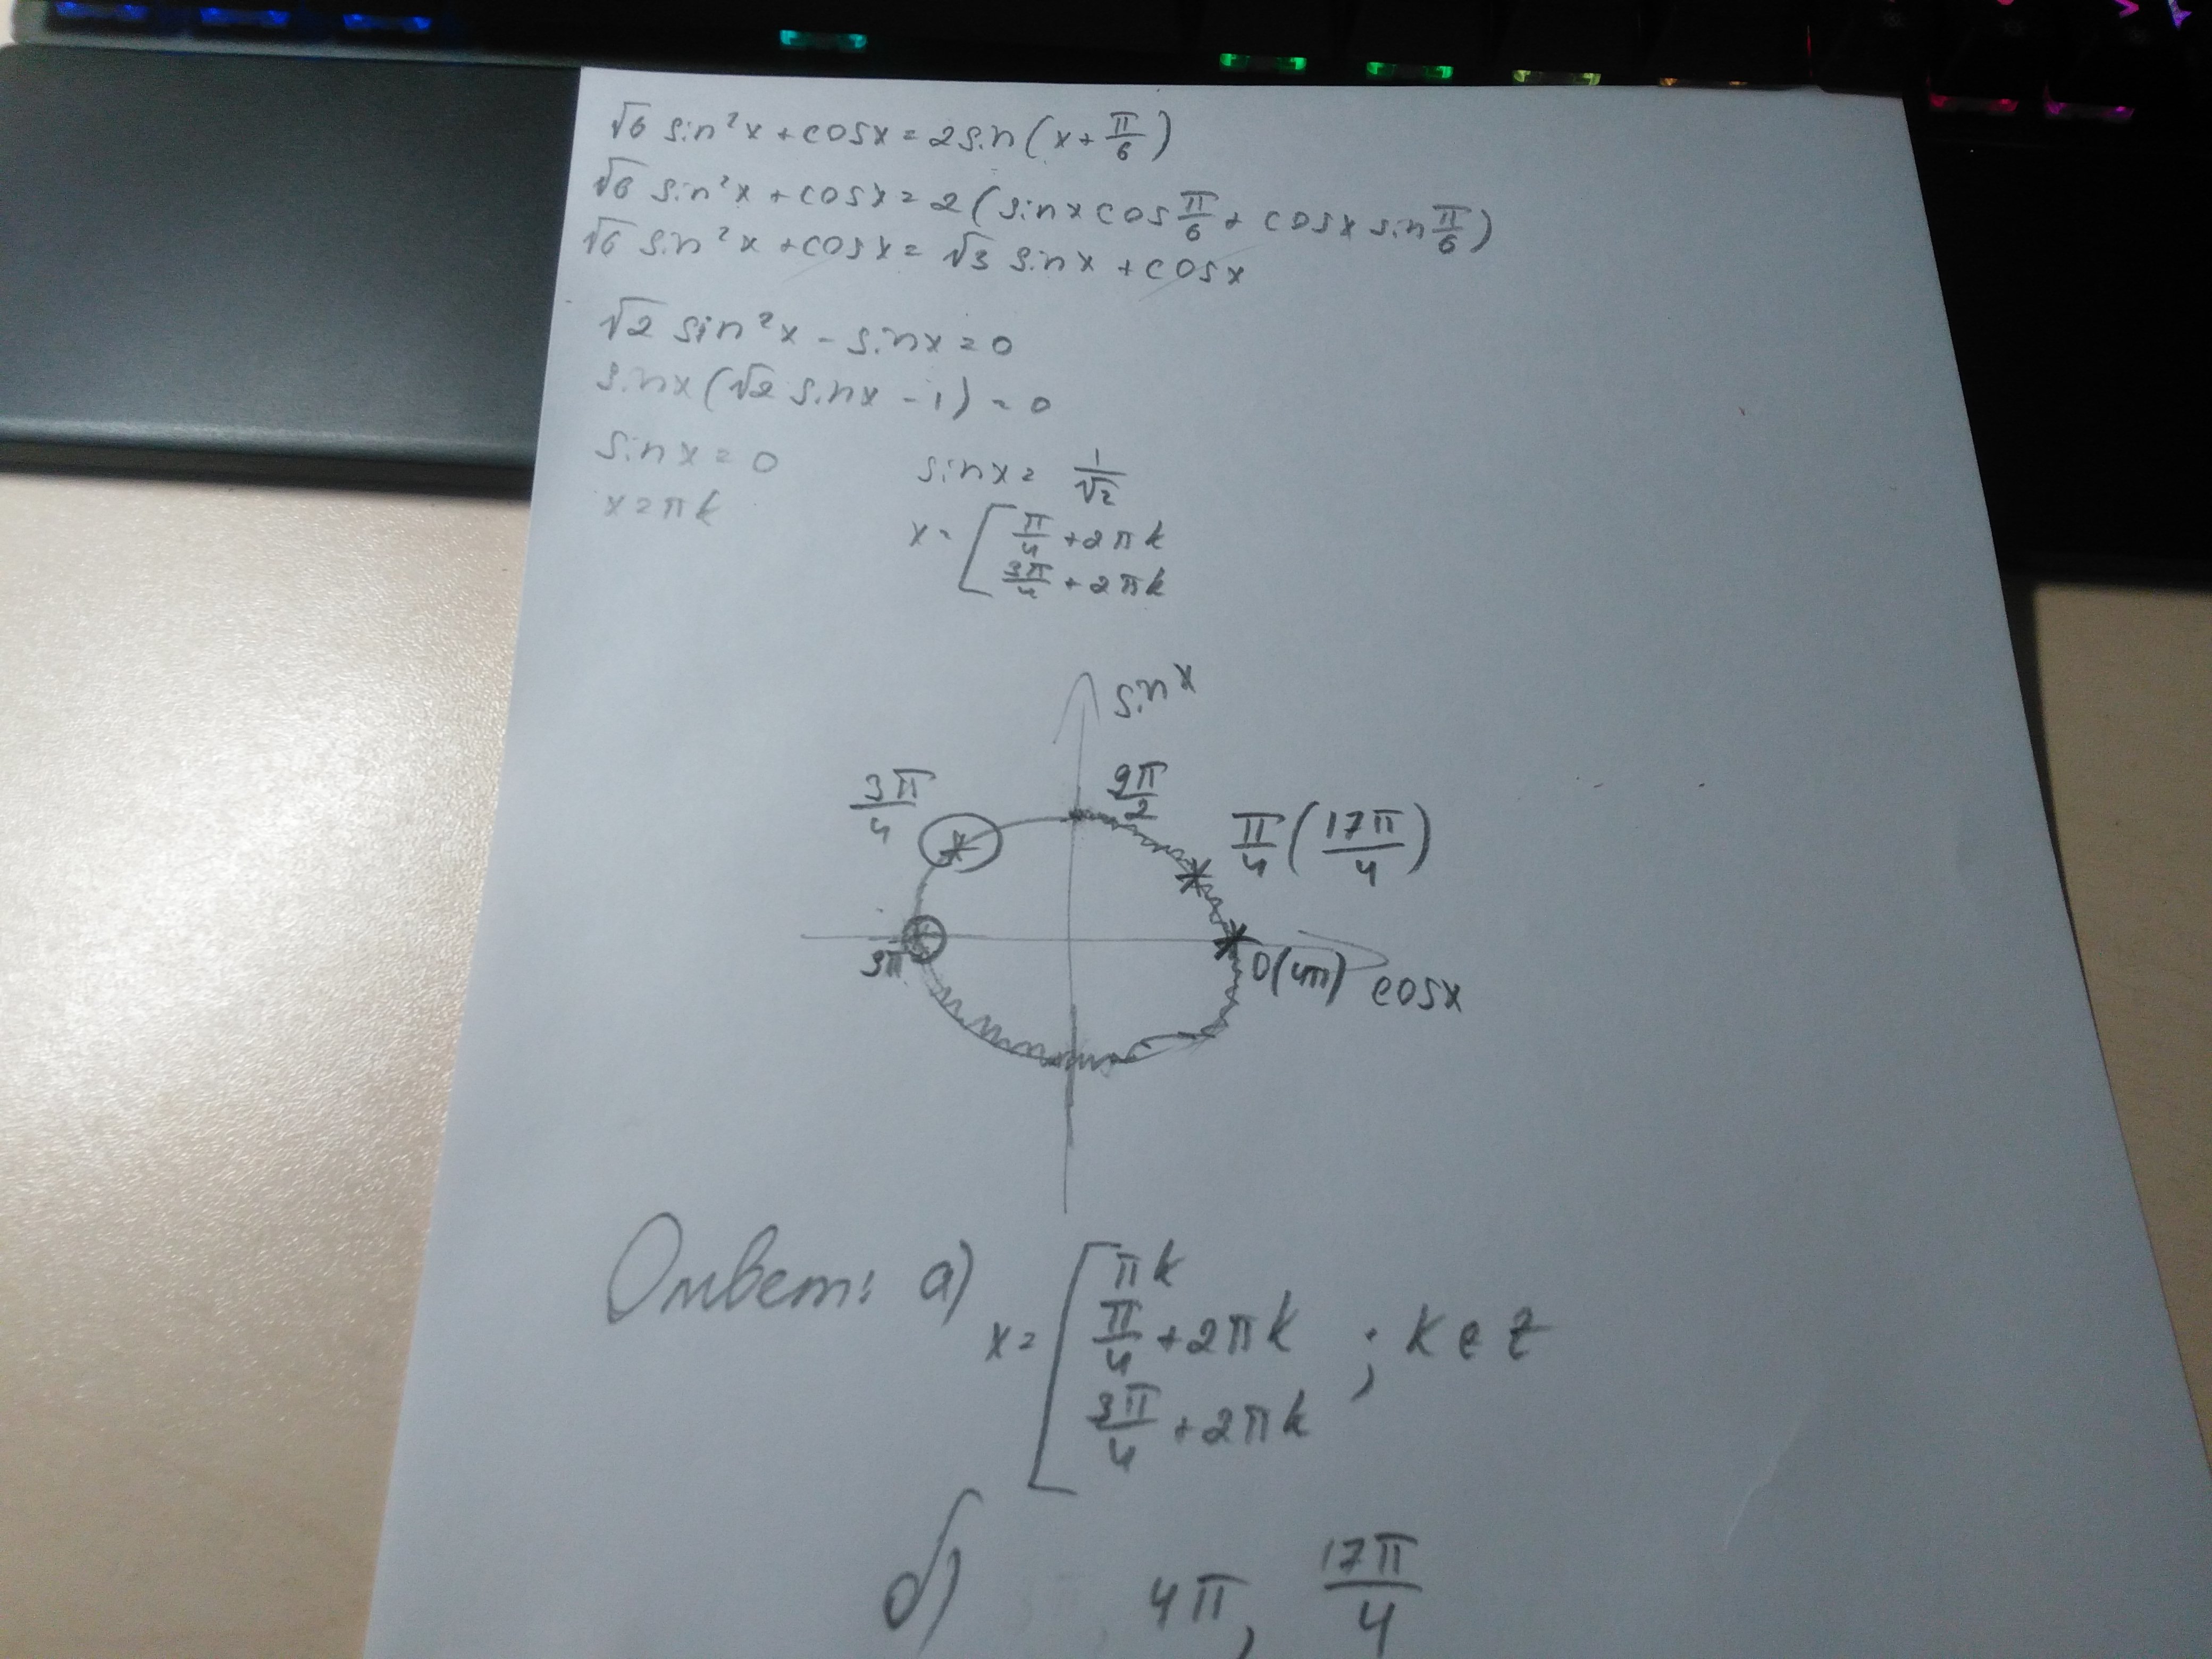 √6 sin²x + cosx = 2sin(x + π/6)
√6 sin²x + cosx = 2(sinx cos π/6 + cosx sin π/6)
√6 sin²x + cosx = √3 sinx + cosx
√2 sin²x - sinx = 0
sinx(√2 sinx - 1) = 0
sinx = 0 sinx = 1/√2
x = πk x = [ π/4 + 2πk
3π/4 + 2πk
sinx
3π/4 9π/2 π/4 (17π/4)
3π 0(4π) cosx
Ответ: а) x = [ πk
π/4 + 2πk ; k ∈ Z
3π/4 + 2πk
б) 4π, 17π/4